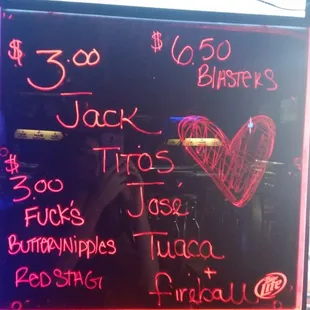 $ 3.00
Jack
Titos
José
Tuaca
+
fireball
$ 6.50
BLASTERS
$ 3.00
FUCK'S
BUTTERYNIPPLES
RED STAG
Lite